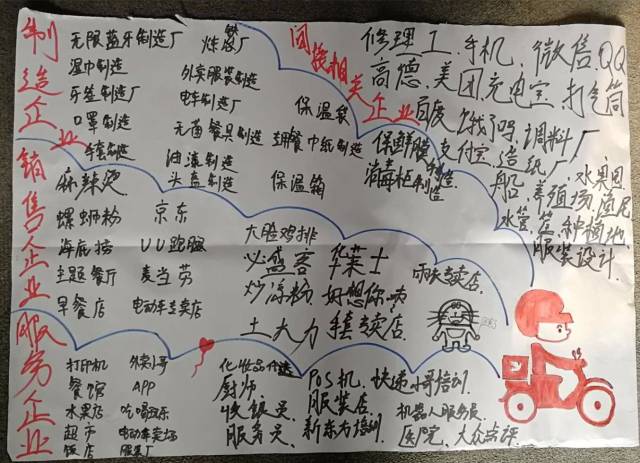 制造企业
无限蓝牙制造厂
湿巾制造
牙签制造厂
口罩制造
手套制造
外卖服装制造
电车制造厂
无菌餐具制造
油漆制造
头盔制造
保温袋
保温箱
保鲜膜制造
消毒柜制造
间接相关企业
修理工、手机、微信、QQ
高德、美团、充电宝、打气筒
百度、饿了吗、调料厂
支付宝、造纸厂
船、养殖场、渔民
水果园
种植地
服装设计
销售企业
麻辣烫
螺蛳粉
海底捞
主题餐厅
早餐店
京东
UU跑腿
麦当劳
电动车专卖店
大脸鸡排
必盛客
华莱士
炒凉粉
好想你
土大力
手套专卖店
雨衣专卖店
服务企业
打印机
餐馆
水果店
超市
饭店
外卖小哥
APP
吃喝玩乐
电动车卖场
服装厂
厨师
收银员
服务员
POS机、快递小哥培训
服装店
机器人服务员
新东方培训
医院、大众点评